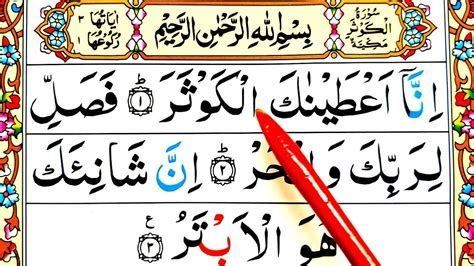 سُوْرَةُ
الْكَوْثَرِ
مَكِّيَّةٌ
بِسْمِ اللّٰهِ الرَّحْمٰنِ الرَّحِيْمِ
اٰيَاتُهَا ٣
رُكُوْعُهَا ١
اِنَّاۤ اَعْطَيْنٰكَ الْكَوْثَرَ ؕ﴿١﴾ فَصَلِّ
لِرَبِّكَ وَانْحَرْ ؕ﴿٢﴾ اِنَّ شَانِئَكَ
هُوَ الْاَبْتَرُ ﴿٣﴾ ع